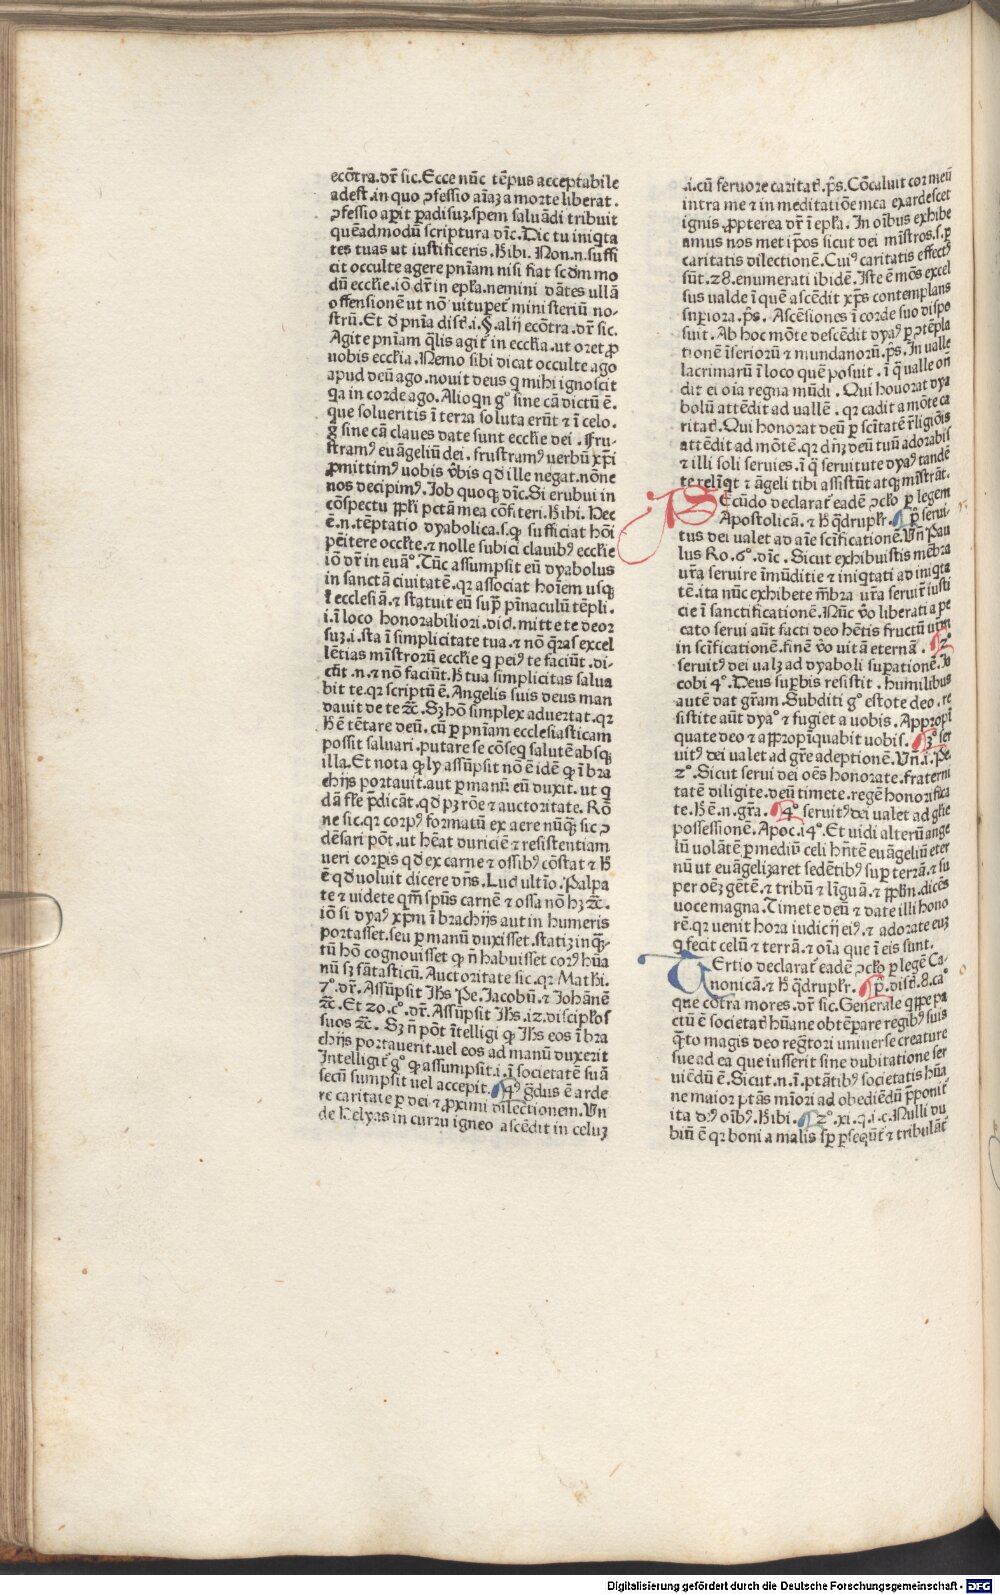 ecōtra.dr̄ sic.Ecce nūc tēpus acceptabile
adest.in quo ꝯfessio aīaꝫ a morte liberat.
ꝯfessio apit ꝑadisuꝫ.spem saluādi tribuit
quēadmodū scriptura dīc.Dic tu iniqta
tes tuas ut iustificeris.Hibi.Non.n.suffi
cit occulte agere pn̄iam nisi fiat scd̄m mo
dū ecclie.iō dr̄ in epl̄a.nemini dātes ullā
offensionē ut nō uitupet̄ ministeriū no-
strū.Et ð pn̄ia dist̄.i.§.alij ecōtra.dr̄ sic.
Agite pn̄iam q̄lis agit̄ in ecclīa.ut oret ꝓ
vobis ecclīa.Nemo sibi dicat occulte ago
apud deū ago.nouit deus q mihi ignoscit
qa in corde ago.Alioqn gͦ sine cā dictū ē.
que solueritis ī terra soluta erūt ⁊ ī celo.
g̊ sine cā claues date sunt ecclie dei.Fru-
stramꝰ euāgeliū dei.frustramꝰ verbū xp̄i
ꝓmittimꝰ vobis v̄bis qð ille negat.nōne
nos decipimꝰ.Iob quoqꝫ dīc.Si erubui in
cōspectu ppl̄i pctā mea cōfiteri.Hibi.Hec
ē.n.tēptatio dyabolica.s.ꝙ sufficiat hōi
pēitere occlte.⁊ nolle subici clauibꝰ ecclie
iō dr̄ in euāͦ.Tūc assumpsit eū dyabolus
in sanctā ciuitatē.qr associat hoīem usqꝫ
ī ecclesiā.⁊ statuit eū suꝑ pīnaculū tēpli.
i.ī loco honorabiliori.dicī.mitte te deor
suꝫ.i.sta ī simplicitate tua.⁊ nō q̄ras excel
lētias mīstrorū ecclie q peiꝰ te faciūt.di-
cūt.n.⁊ nō faciūt.Hꝫ tua simplicitas salua
bit te.qr scriptū ē.Angelis suis deus man
dauit de te ⁊c̄.Sꝫ hō simplex aduertat.qr
H ē tētare deū.cū ꝑ pn̄iam ecclesiasticam
possit saluari.putare se cōseq̄ salutē absqꝫ
illa.Et nota ꝙ ly assūpsit nō ē idē ꝙ ī bra
chijs portauit.aut ꝑ manū eū duxit.ut q
dā fl̄e p̄dicāt.qð pꝫ rōe ⁊ auctoritate.Rō
ne sic.qr corpꝰ formatū ex aere nūqꝫ sic ꝯ
dēsari pōt.ut hēat duriciē ⁊ resistentiam
ueri corpis qð ex carne ⁊ ossibꝰ cōstat ⁊ H
ē qð uoluit dicere dn̄s.Luc̄ ultīo.Palpa
te ⁊ videte qm̄ spūs carnē ⁊ ossa nō hꝫ ⁊c̄.
iō si dyaꝰ xp̄m ī brachijs aut in humeris
portasset.seu ꝑ manū duxisset.statiꝫ inq̄-
tū hō cognouisset ꝙ n̄ habuisset corꝰ hūa
nū sꝫ fātasticū.Auctoritate sic.qr Mathi.
7ͦ.dr̄.Assūpsit Ihs Pe.Iacobū.⁊ Iohānē
⁊c̄.Et 20.cͦ.dr̄.Assūpsit Ihs.12.discipl̄os
suos ⁊c̄.Sꝫ n̄ pōt ītelligi ꝙ Ihs eos ī bra
chijs portauerit.vel eos ad manū duxerit
Intelligit̄ gͦ ꝙ assumpsit.i.ī societatē suā
secū sumpsit uel accepit.4ꝰ g̊dus ē arde
re caritate ꝑ dei ⁊ ꝓximi dilectionem.Vn̄
de Helyas in curru igneo ascēdit in celuꝫ
.i.cū feruore caritat̄.p̄s.Cōcaluit cor meū
intra me ⁊ in meditatiōe mea exardescet
ignis.ꝓpterea dr̄ ī epl̄a.In oībus exhibe
amus nos met ip̄os sicut dei mīstros.s.ꝑ
caritatis dilectionē.Cuiꝰ caritatis effectꝰ
sūt.28.enumerati ibidē.Iste ē mōs excel
sus valde ī quē ascēdit xp̄s contemplans
supiora.p̄s.Ascēsiones ī corde suo dispo
suit.Ab hoc mōte descēdit dyaꝰ ꝑ ꝯtēpla
tionē īferiorū ⁊ mundanorū.p̄s.In valle
lacrimarū ī loco quē posuit.ī q̄ valle on̄
dit ei oīa regna mūdi.Qui honorat dya
bolū attēdit ad vallē.qr cadit a mōte ca
ritat̄.Qui honorat deū ꝑ scītatē r̄ligiōis
attēdit ad mōtē.qr dn̄ꝫ deū tuū adorabis
⁊ illi soli seruies.ī q̄ seruitute dyaꝰ tandē
te relīqt ⁊ āgeli tibi assistūt atqꝫ mīstrāt.
SEcūdo declarat̄ eadē ꝯclo ꝑ legem
Apostolicā.⁊ H q̄drupl̄r.pͦ serui-
tus dei valet ad aīe scīficationē.Vn̄ Pau
lus Ro.6ͦ.dīc.Sicut exhibuistis mēbra
ur̄a seruire īmūditie ⁊ iniqtati ad iniqta
tē.ita nūc exhibete mēbra ur̄a seruir̄ iusti
cie ī sanctificationē.Nūc v̄o liberati a pe
cato serui aūt facti deo hētis fructū ur̄m
in scīficationē.finē v̄o vitā eternā.2ͦ
seruitꝰ dei ualꝫ ad dyaboli supationē.Ia
cobi 4ͦ.Deus supbis resistit.humilibus
autē dat gr̄am.Subditi gͦ estote deo.re
sistite aūt dyaͦ ⁊ fugiet a uobis.Appropī
quate deo ⁊ appropīquabit uobis.3ͦ ser
uitꝰ dei valet ad gr̄e adeptionē.Vn̄.i.Pe
2ͦ.Sicut serui dei oēs honorate.fraterni
tatē diligite.deū timete.regē honorifica
te.H ē.n.gr̄a.4ͦ seruitꝰ dei valet ad gl̄ie
possessionē.Apoc.i4ͦ.Et uidi alterū ange
lū uolātē ꝑ mediū celi hn̄tē euāgeliū eter
nū ut euāgelizaret sedētibꝰ suꝑ terrā.⁊ su
per oēꝫ gētē.⁊ tribū ⁊ līguā.⁊ ppl̄m.dicēs
voce magna.Timete deū ⁊ date illi hono
rē.qr uenit hora iudicij eiꝰ.⁊ adorate euꝫ
q fecit celū ⁊ terrā.⁊ oīa que ī eis sunt.
TErtio declarat̄ eadē ꝯclo ꝑ legē Ca-
nonicā.⁊ H q̄drupl̄r.pͦ.dist̄.8.caͦ
que cōtra mores.dr̄ sic.Generale qppe pa
ctū ē societat̄ hūane obtēperare regibꝰ suis
q̄to magis deo regn̄tori uniuerse creature
sue ad ea que iusserit sine dubitatione ser
uiēdū ē.Sicut.n.ī.ptātibꝰ societatis hūa
ne maior ptās mīori ad obediēdū p̄ponit̄
ita dꝰ oībꝰ.Hibi.2ͦ.xi.q.i.c.Nulli du
biū ē qr boni a malis sp̄ psequūt̄ ⁊ tribulāt̄
Digitalisierung gefördert durch die Deutsche Forschungsgemeinschaft - DFG